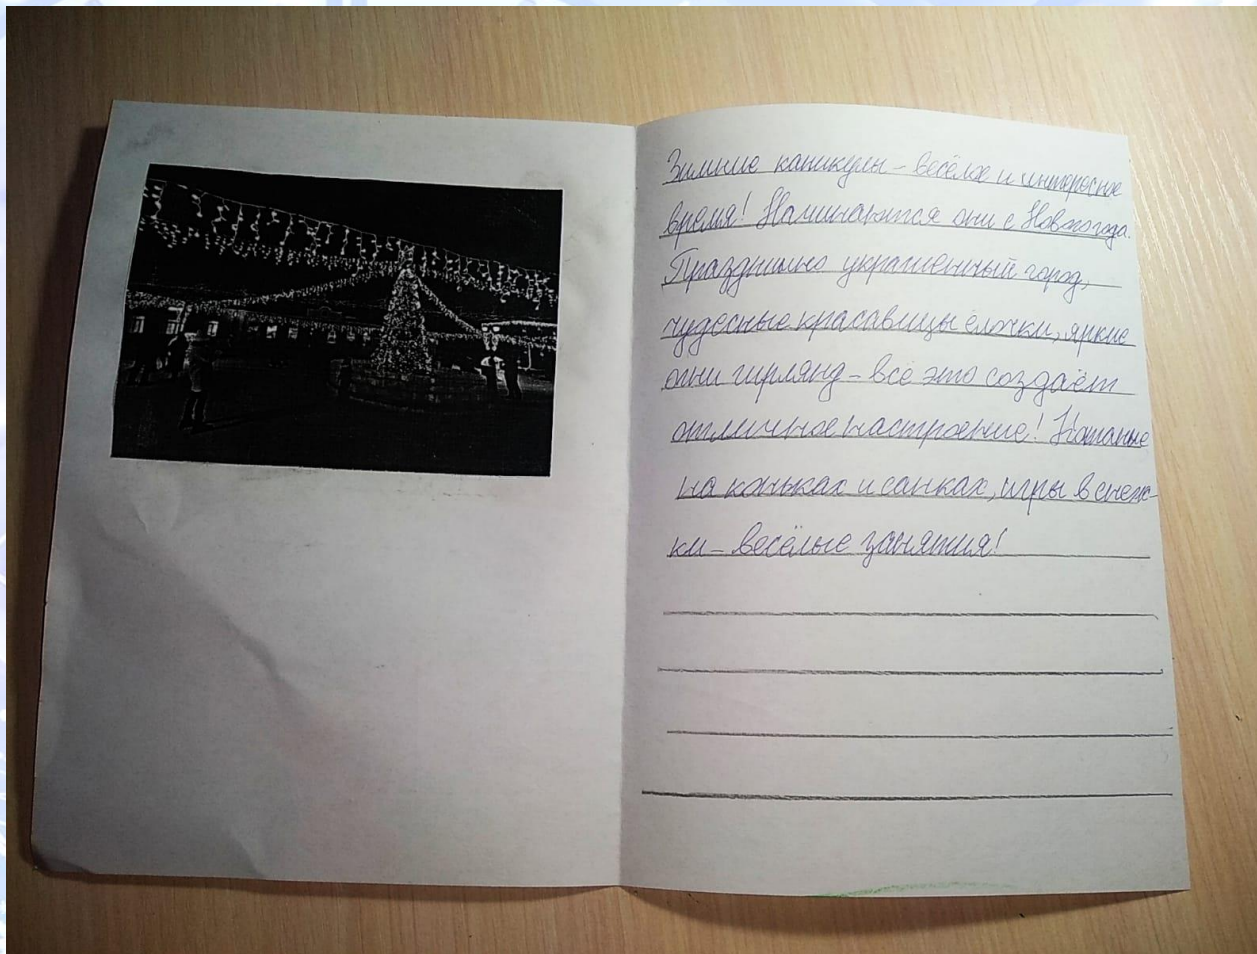 Зимние каникулы – весёлое и интересное
время! Начинаются они с Нового года.
Празднично украшенный город,
чудесные красавицы ёлочки, яркие
огни гирлянд – всё это создаёт
отличное настроение! Катание
на коньках и санках, игры в снеж-
ки – весёлые занятия!